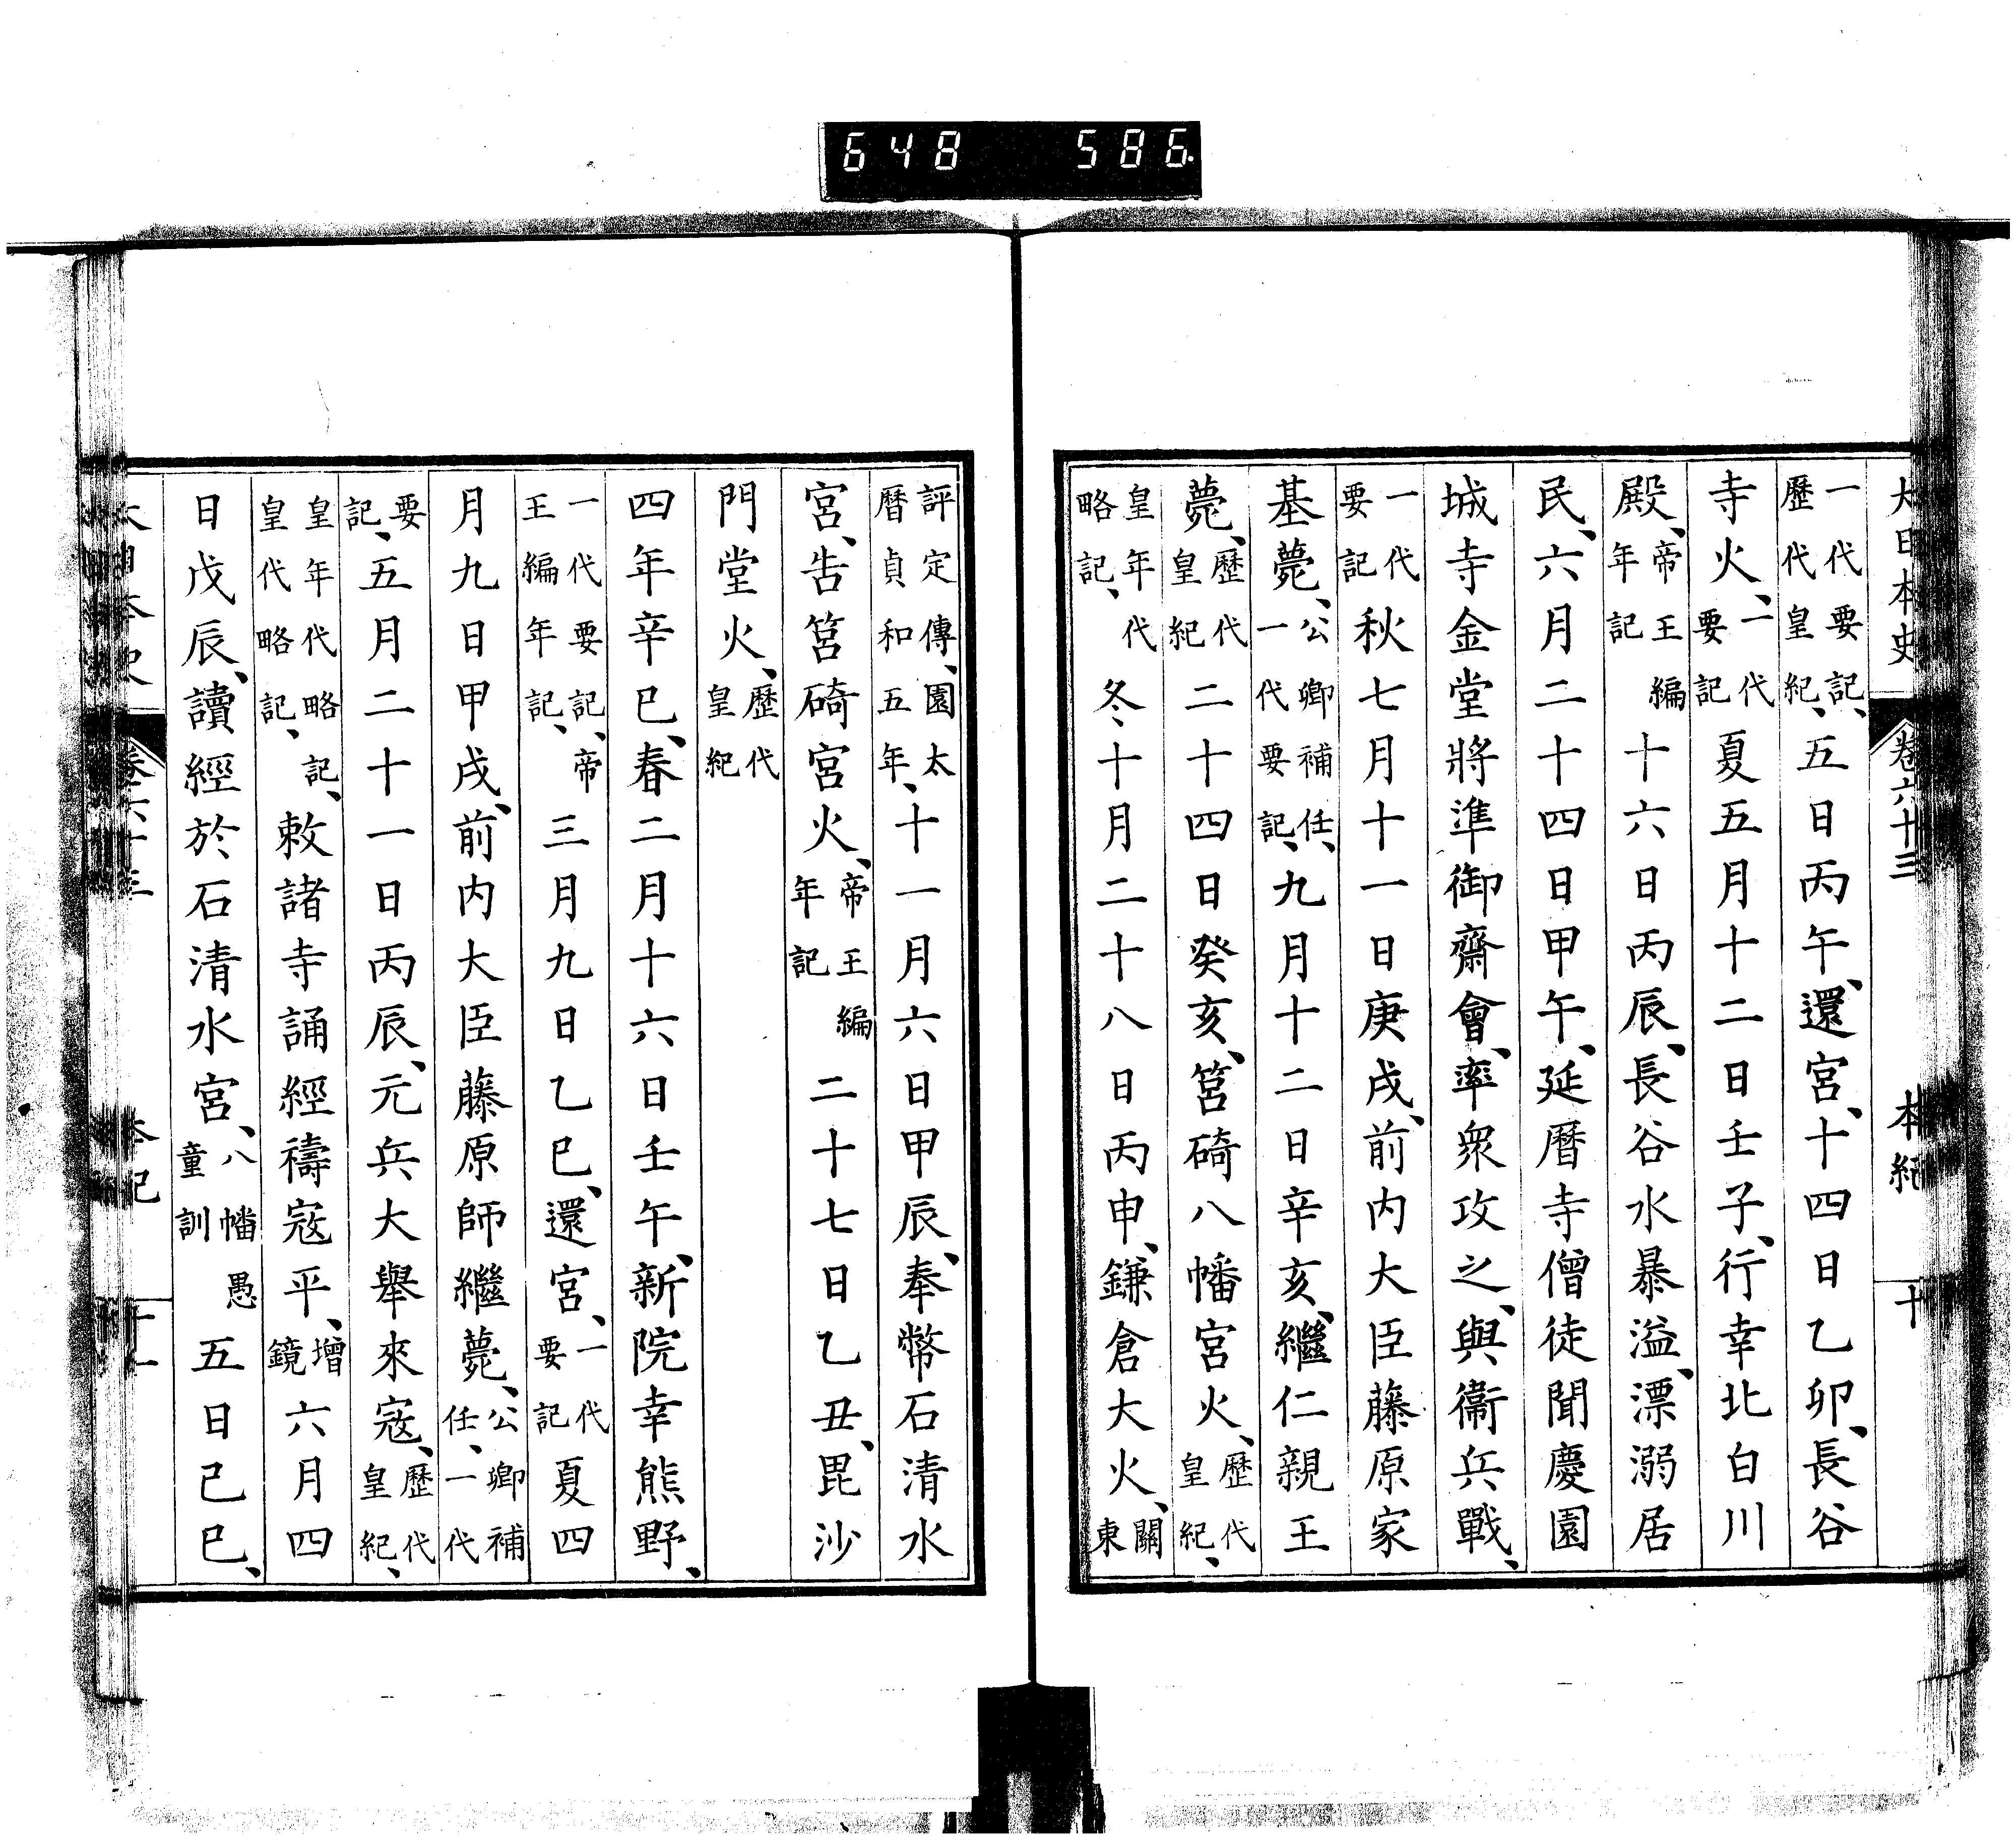 648 586
大日本史 卷六十三 本紀 十
一代要記、歷代皇紀、五日丙午、還宮、十四日乙卯、長谷
寺火、一代要記夏五月十二日壬子、行幸北白川
殿、帝王編年記十六日丙辰、長谷水暴溢、漂溺居
民、六月二十四日甲午、延曆寺僧徒聞慶園
城寺金堂將準御齋會、率衆攻之、與衞兵戰、
一代要記秋七月十一日庚戌、前内大臣藤原家
基薨、公卿補任、一代要記、九月十二日辛亥、繼仁親王
薨、歷代皇紀二十四日癸亥、筥碕八幡宮火、歷代皇紀、
皇年代略記、冬十月二十八日丙申、鎌倉大火、關東
評定傳、園太曆貞和五年、十一月六日甲辰、奉幣石清水
宮、告筥碕宮火、帝王編年記二十七日乙丑、毘沙
門堂火、歷代皇紀
四年辛巳、春二月十六日壬午、新院幸熊野、
一代要記、帝王編年記、三月九日乙巳、還宮、一代要記夏四
月九日甲戌、前内大臣藤原師繼薨、公卿補任、一代
要記、五月二十一日丙辰、元兵大舉來寇、歷代皇紀、
皇年代略記、皇代略記、敕諸寺誦經禱寇平、增鏡六月四
日戊辰、讀經於石清水宮、八幡愚童訓五日己巳、
大日本史 卷六十三 本紀 十一